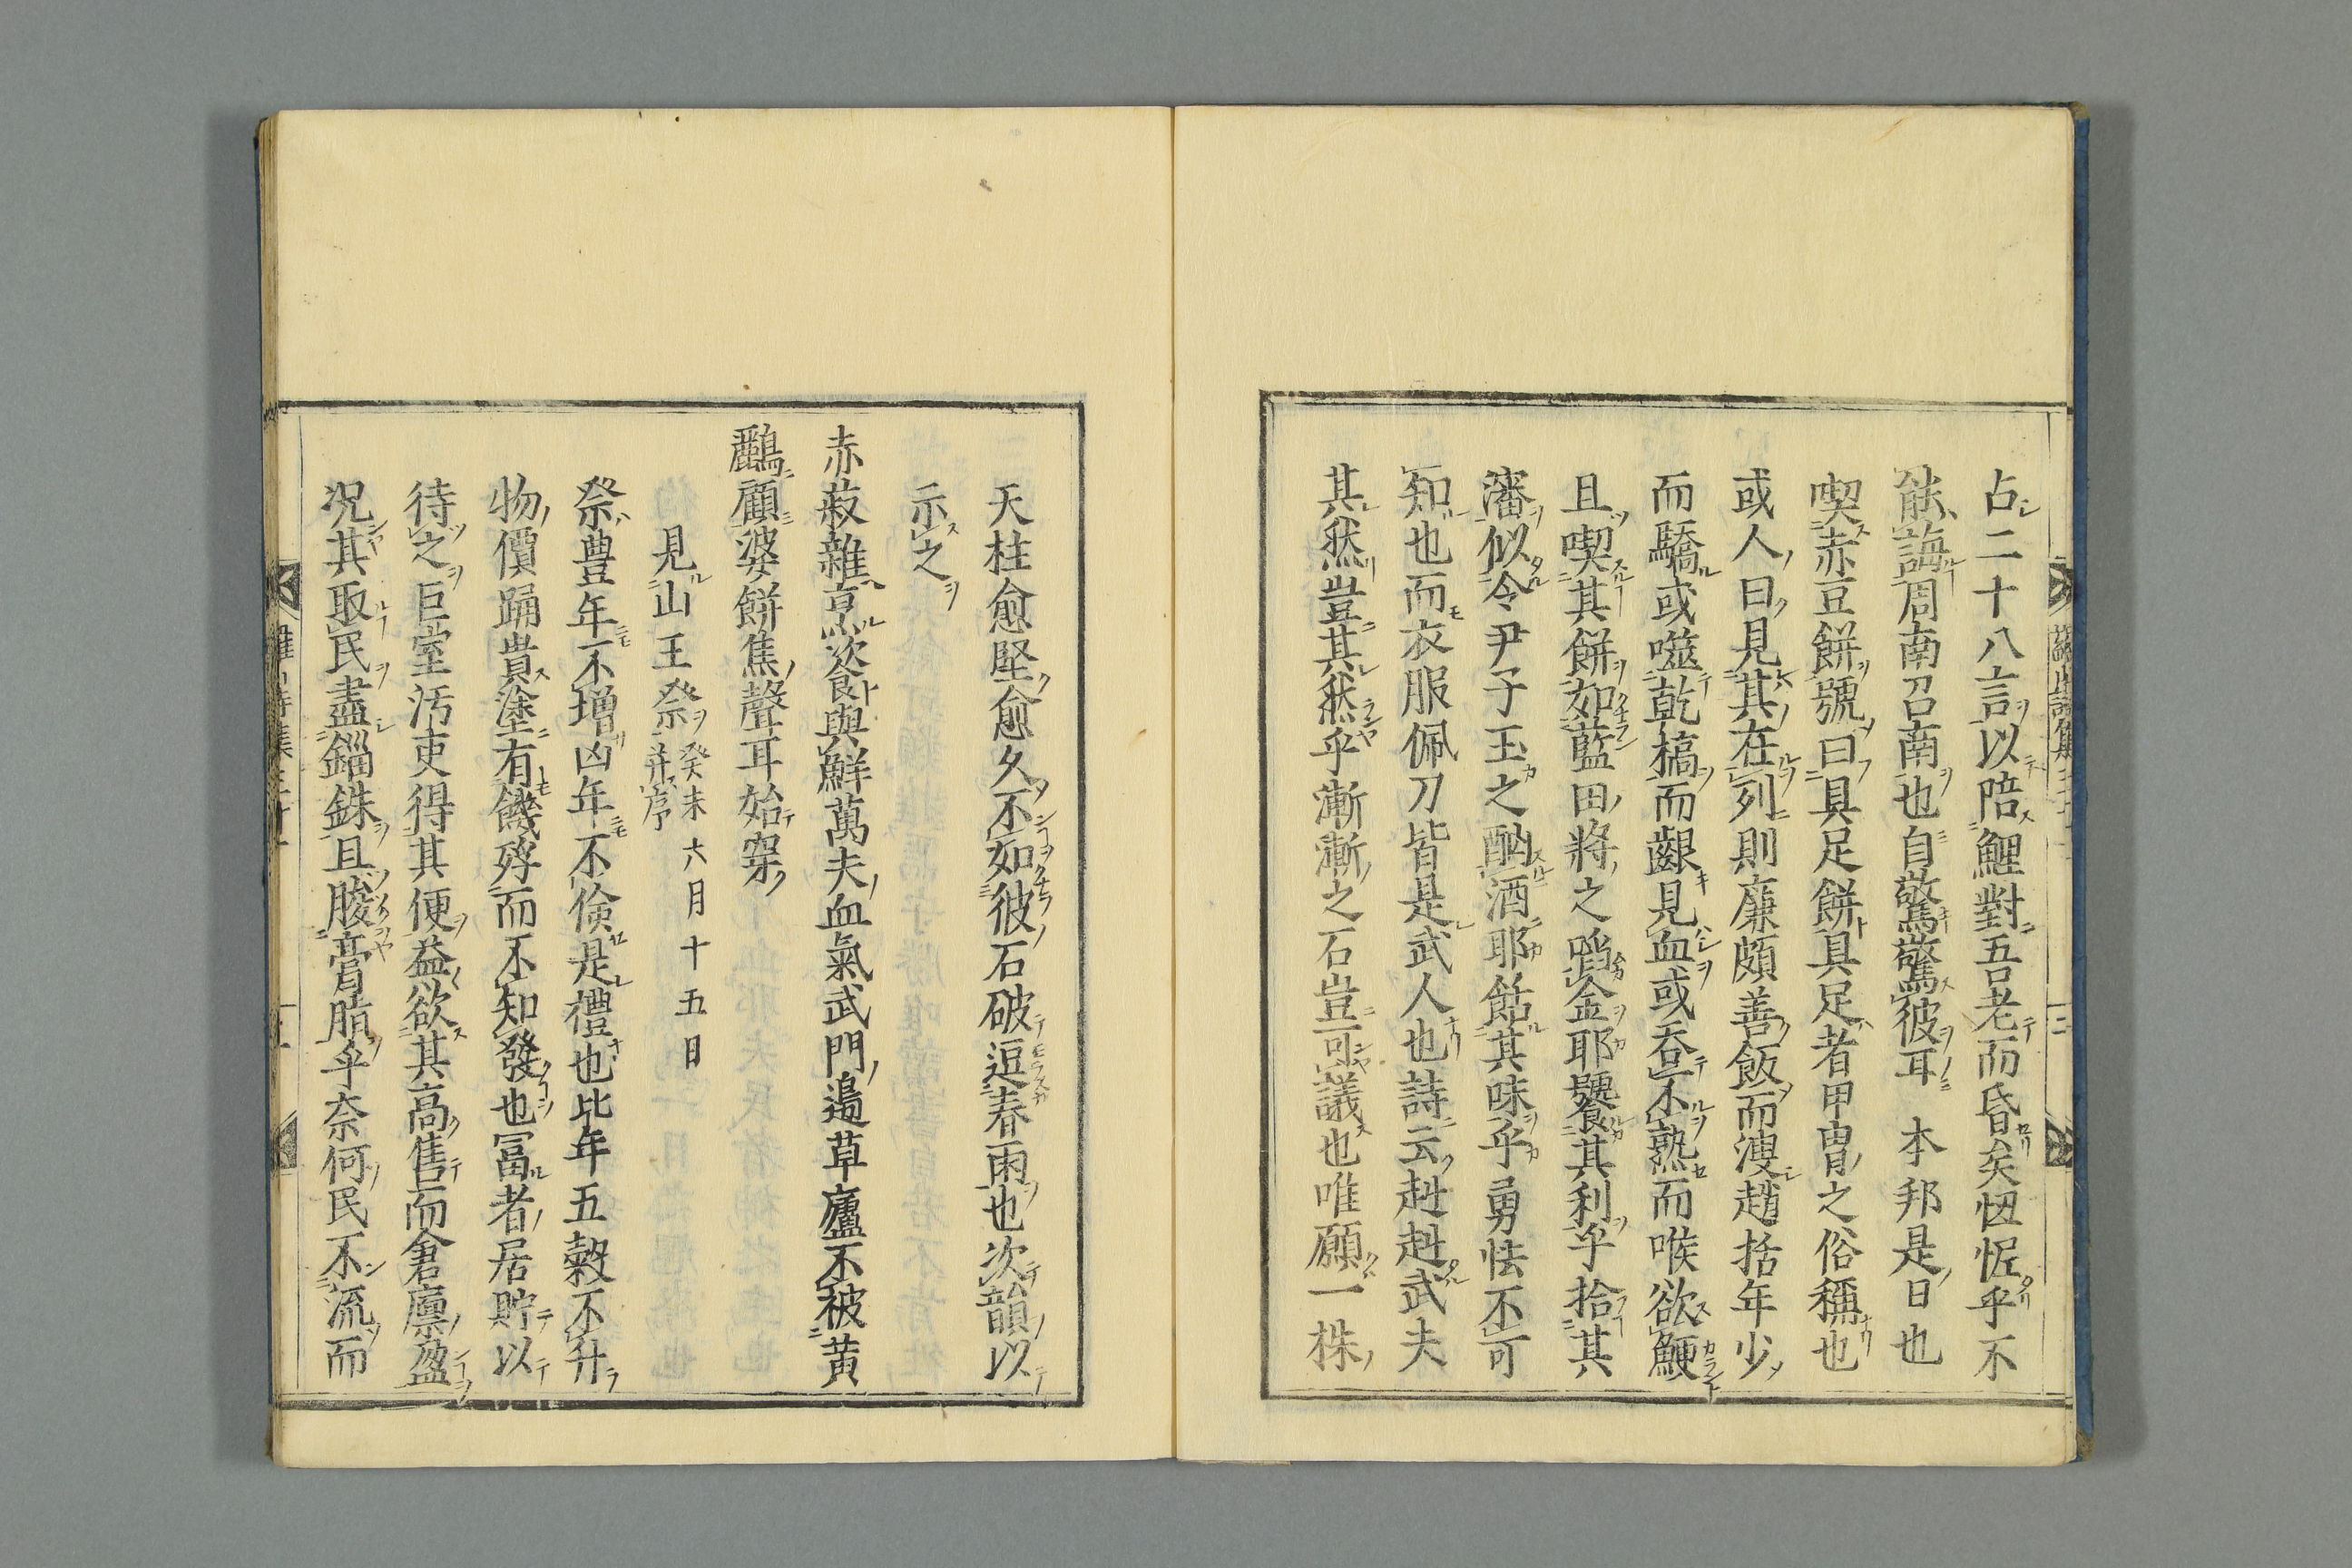 占二十八言以陪鯉對吾老而昏矣忸怩乎不
能誨周南召南也自驚驚彼耳　本邦是日也
喫赤豆餅號曰具足餅具足者甲冑之俗稱也
或人曰見其在列則廉頗善飯而溲趙括年少
而驕或噬乾槁而齦見血或吞不熟而喉欲鯁
且喫其餅如藍田將之啗金耶饕其利乎拾其
瀋似令尹子玉之酗酒耶餂其味乎勇怯不可
知也而衣服佩刀皆是武人也詩云赳赳武夫
其然豈其然乎漸漸之石豈可議也唯願一株
天柱愈堅愈久不如彼石破逗春雨也次韻以
示之
赤菽雜烹飧與鮮萬夫血氣武門邉草廬不被黄
鸝顧婆餅焦聲耳始穿
見山王祭癸未六月十五日
并序
祭豊年不增凶年不儉是禮也比年五穀不升
物價踊貴塗有饑殍而不知發也冨者居貯以
待之巨室汚吏得其便益欲其高售而倉廩盈
况其取民盡錙銖且朘膏脂乎奈何民不流而